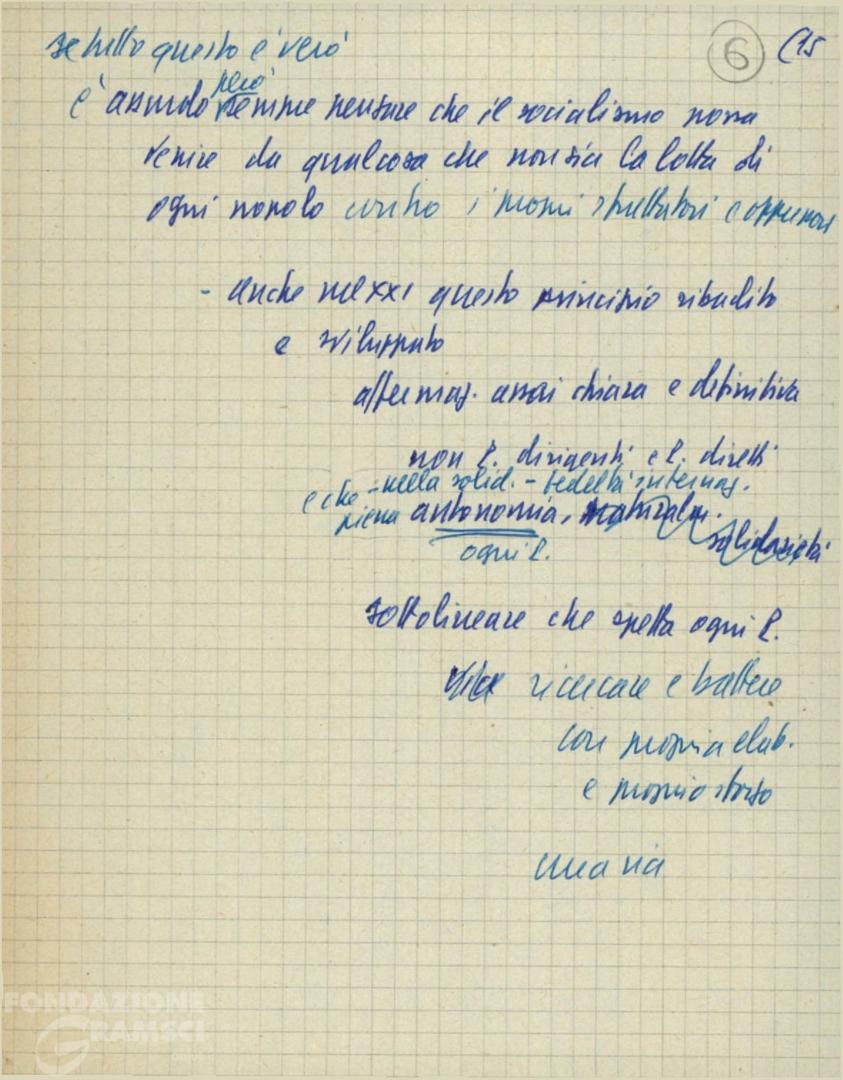 se tutto questo è vero
6 (15
però
è assurdo sempre pensare che il socialismo possa
venire da qualcosa che non sia la lotta di
ogni popolo contro i propri sfruttatori e oppressori
- anche nel XXI questo principio ribadito
e sviluppato
affermaz. assai chiara e definitiva
non P. dirigenti e P. diretti
e che - nella solid. - fedeltà internaz.
piena autonomia, naturalm. solidarietà
ogni P.
sottolineare che spetta ogni P.
ricercare e battere
con propria elab.
e proprio sforzo
una via
FONDAZIONE
GRAMSCI